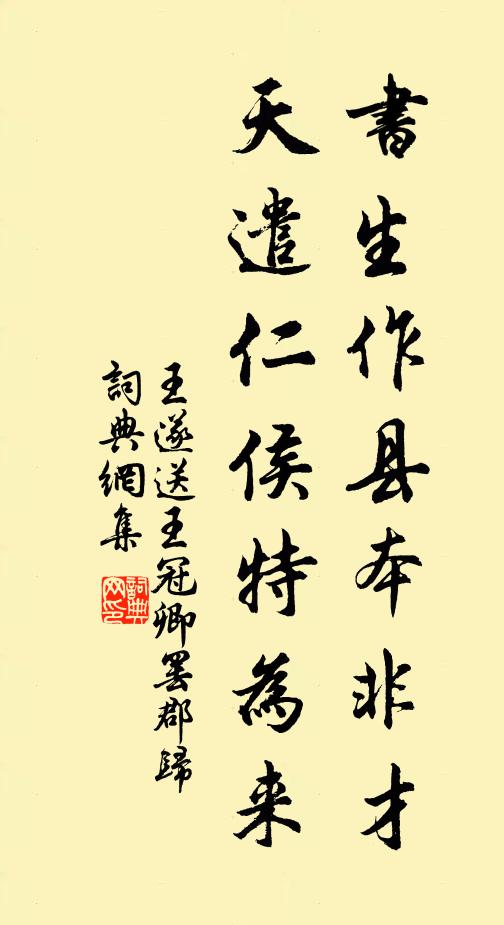 書生作县本非才
天遣仁侯特為来
王遂送王冠卿罢郡歸
詞典網集
詞典网印